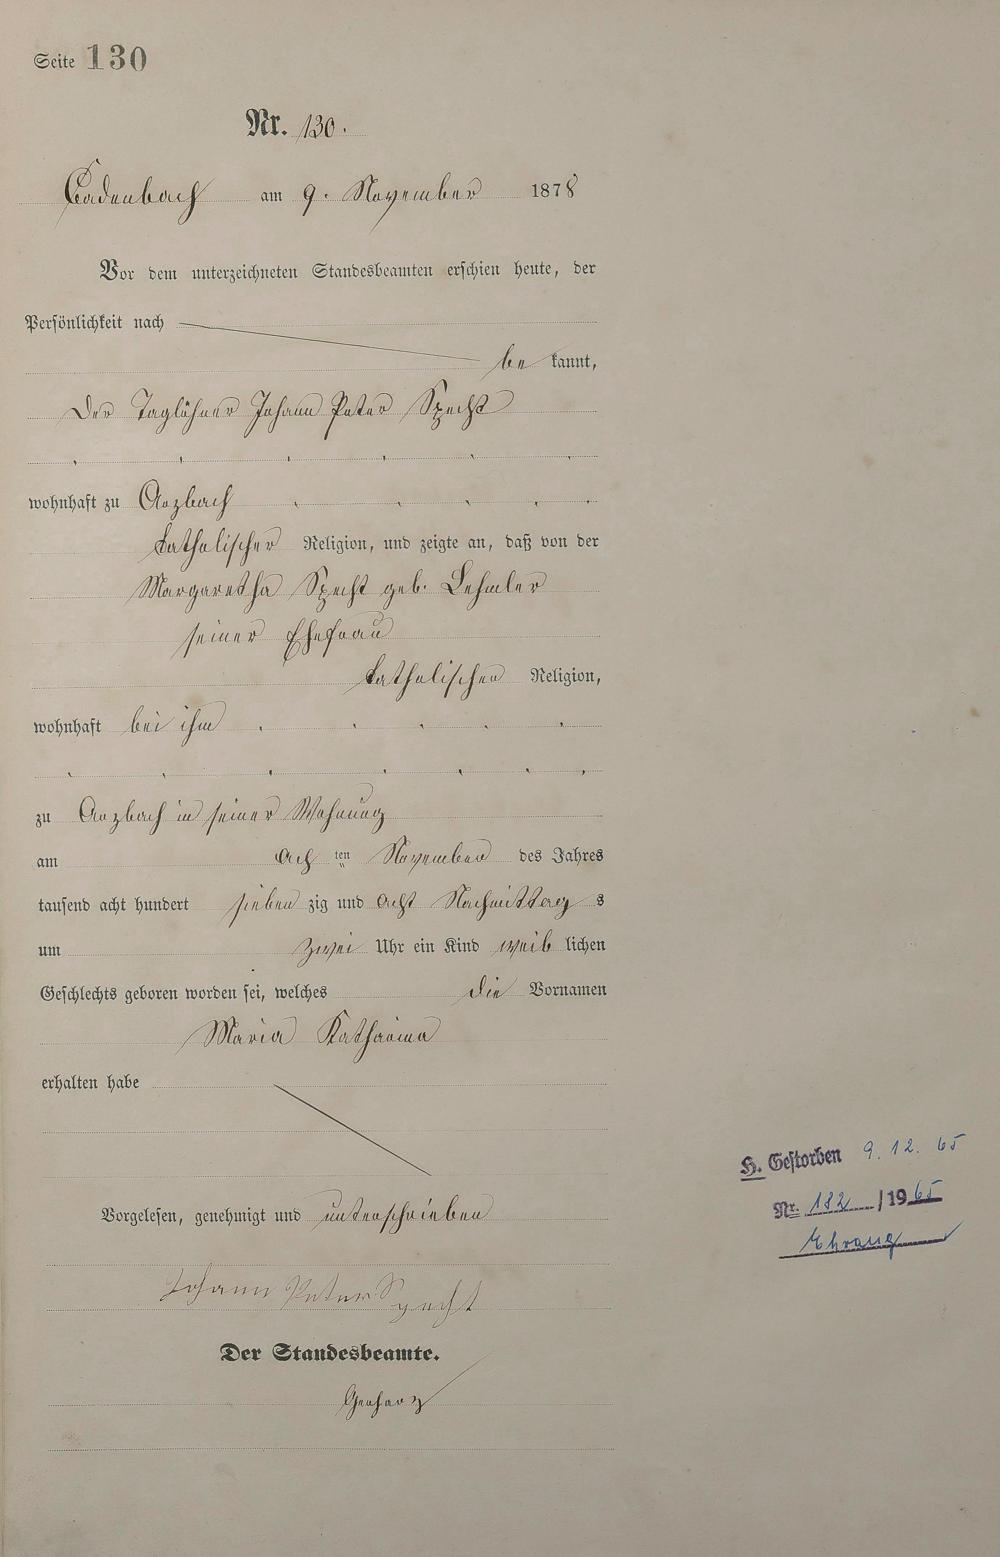 Seite 130
Nr. 130.
Cadenbach am 9. November 1878
Vor dem unterzeichneten Standesbeamten erschien heute, der
Persönlichkeit nach
be kannt,
Der Taglöhner Johann Peter Specht
wohnhaft zu Arzbach
katholischer Religion, und zeigte an, daß von der
Margaretha Specht geb. Lehmler
seiner Ehefrau
katholischer Religion,
wohnhaft bei ihm
zu Arzbach in seiner Wohnung
am ach ten November des Jahres
tausend acht hundert sieben zig und acht Nachmittag s
um zwei Uhr ein Kind weib lichen
Geschlechts geboren worden sei, welches die Vornamen
Maria Katharina
erhalten habe
H. Gestorben 9.12.65
Nr. 182 / 1965
Ehrang
Vorgelesen, genehmigt und unterschrieben
Johann Peter Specht
Der Standesbeamte.
Gerharz